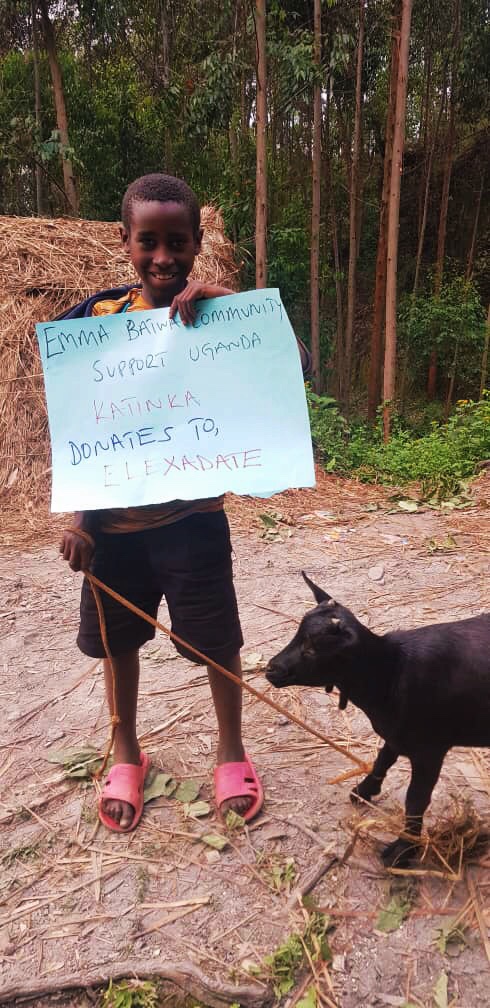 EMMA BATWA COMMUNITY
SUPPORT UGANDA
KATINKA
DONATES TO,
ELEXADATE